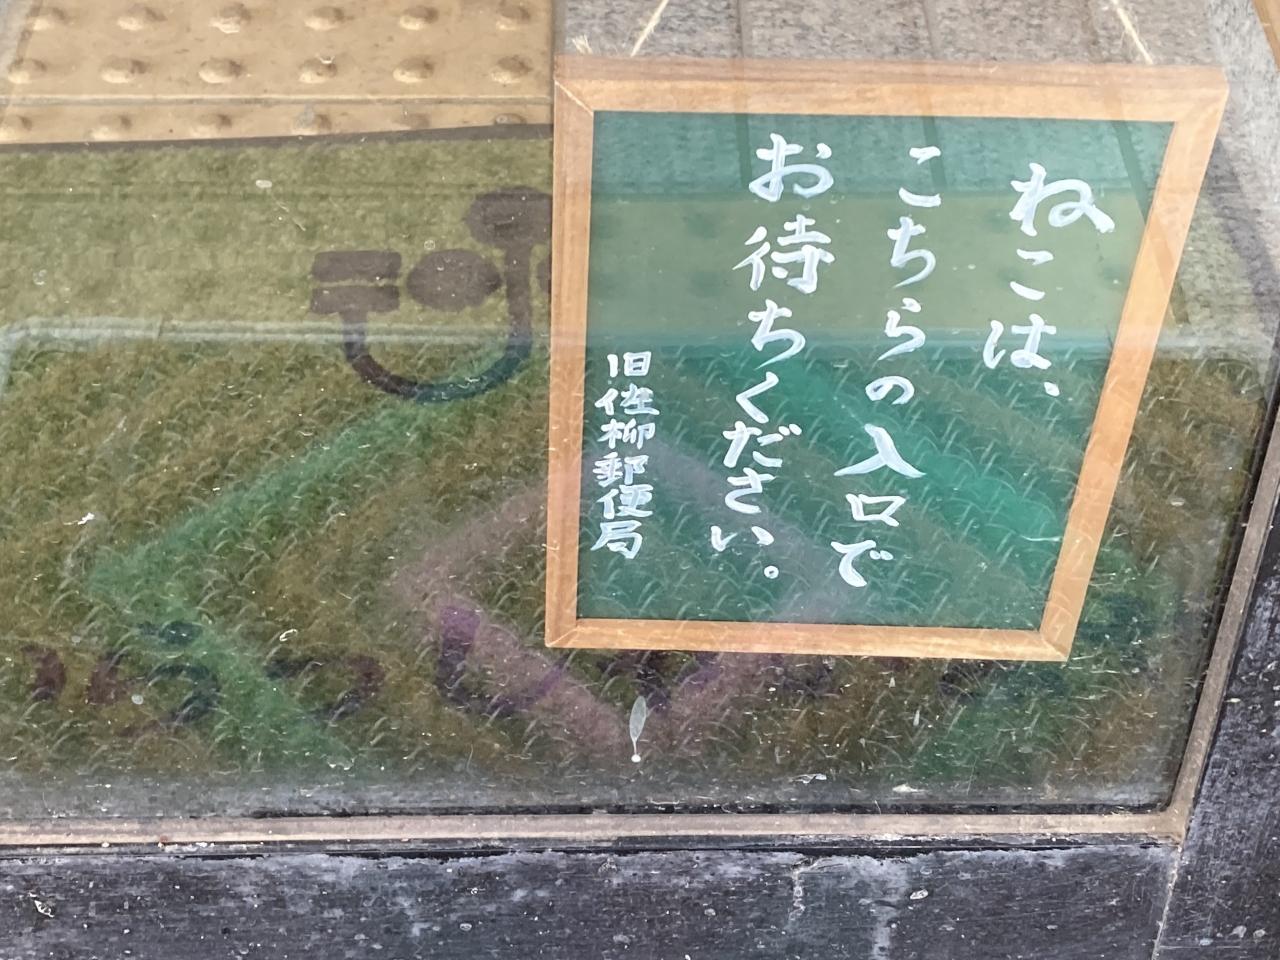 ねこは、
こちらの入口で
お待ちください。
旧佐柳郵便局